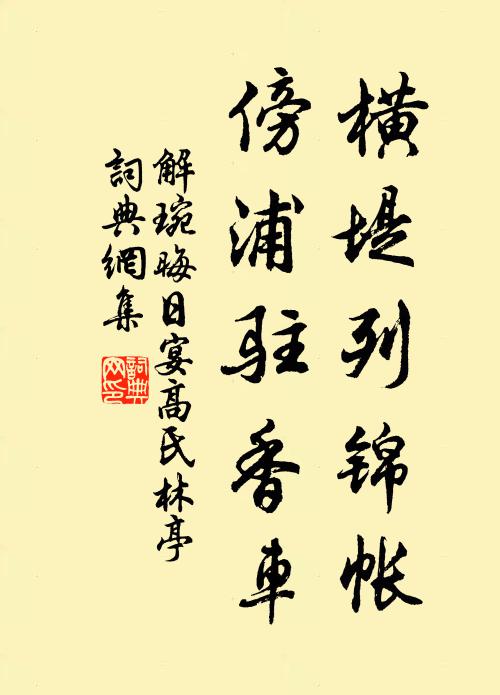 橫堤列锦帐
傍浦驻香車
解琬晦日宴高氏林亭
詞典網集
詞典网印